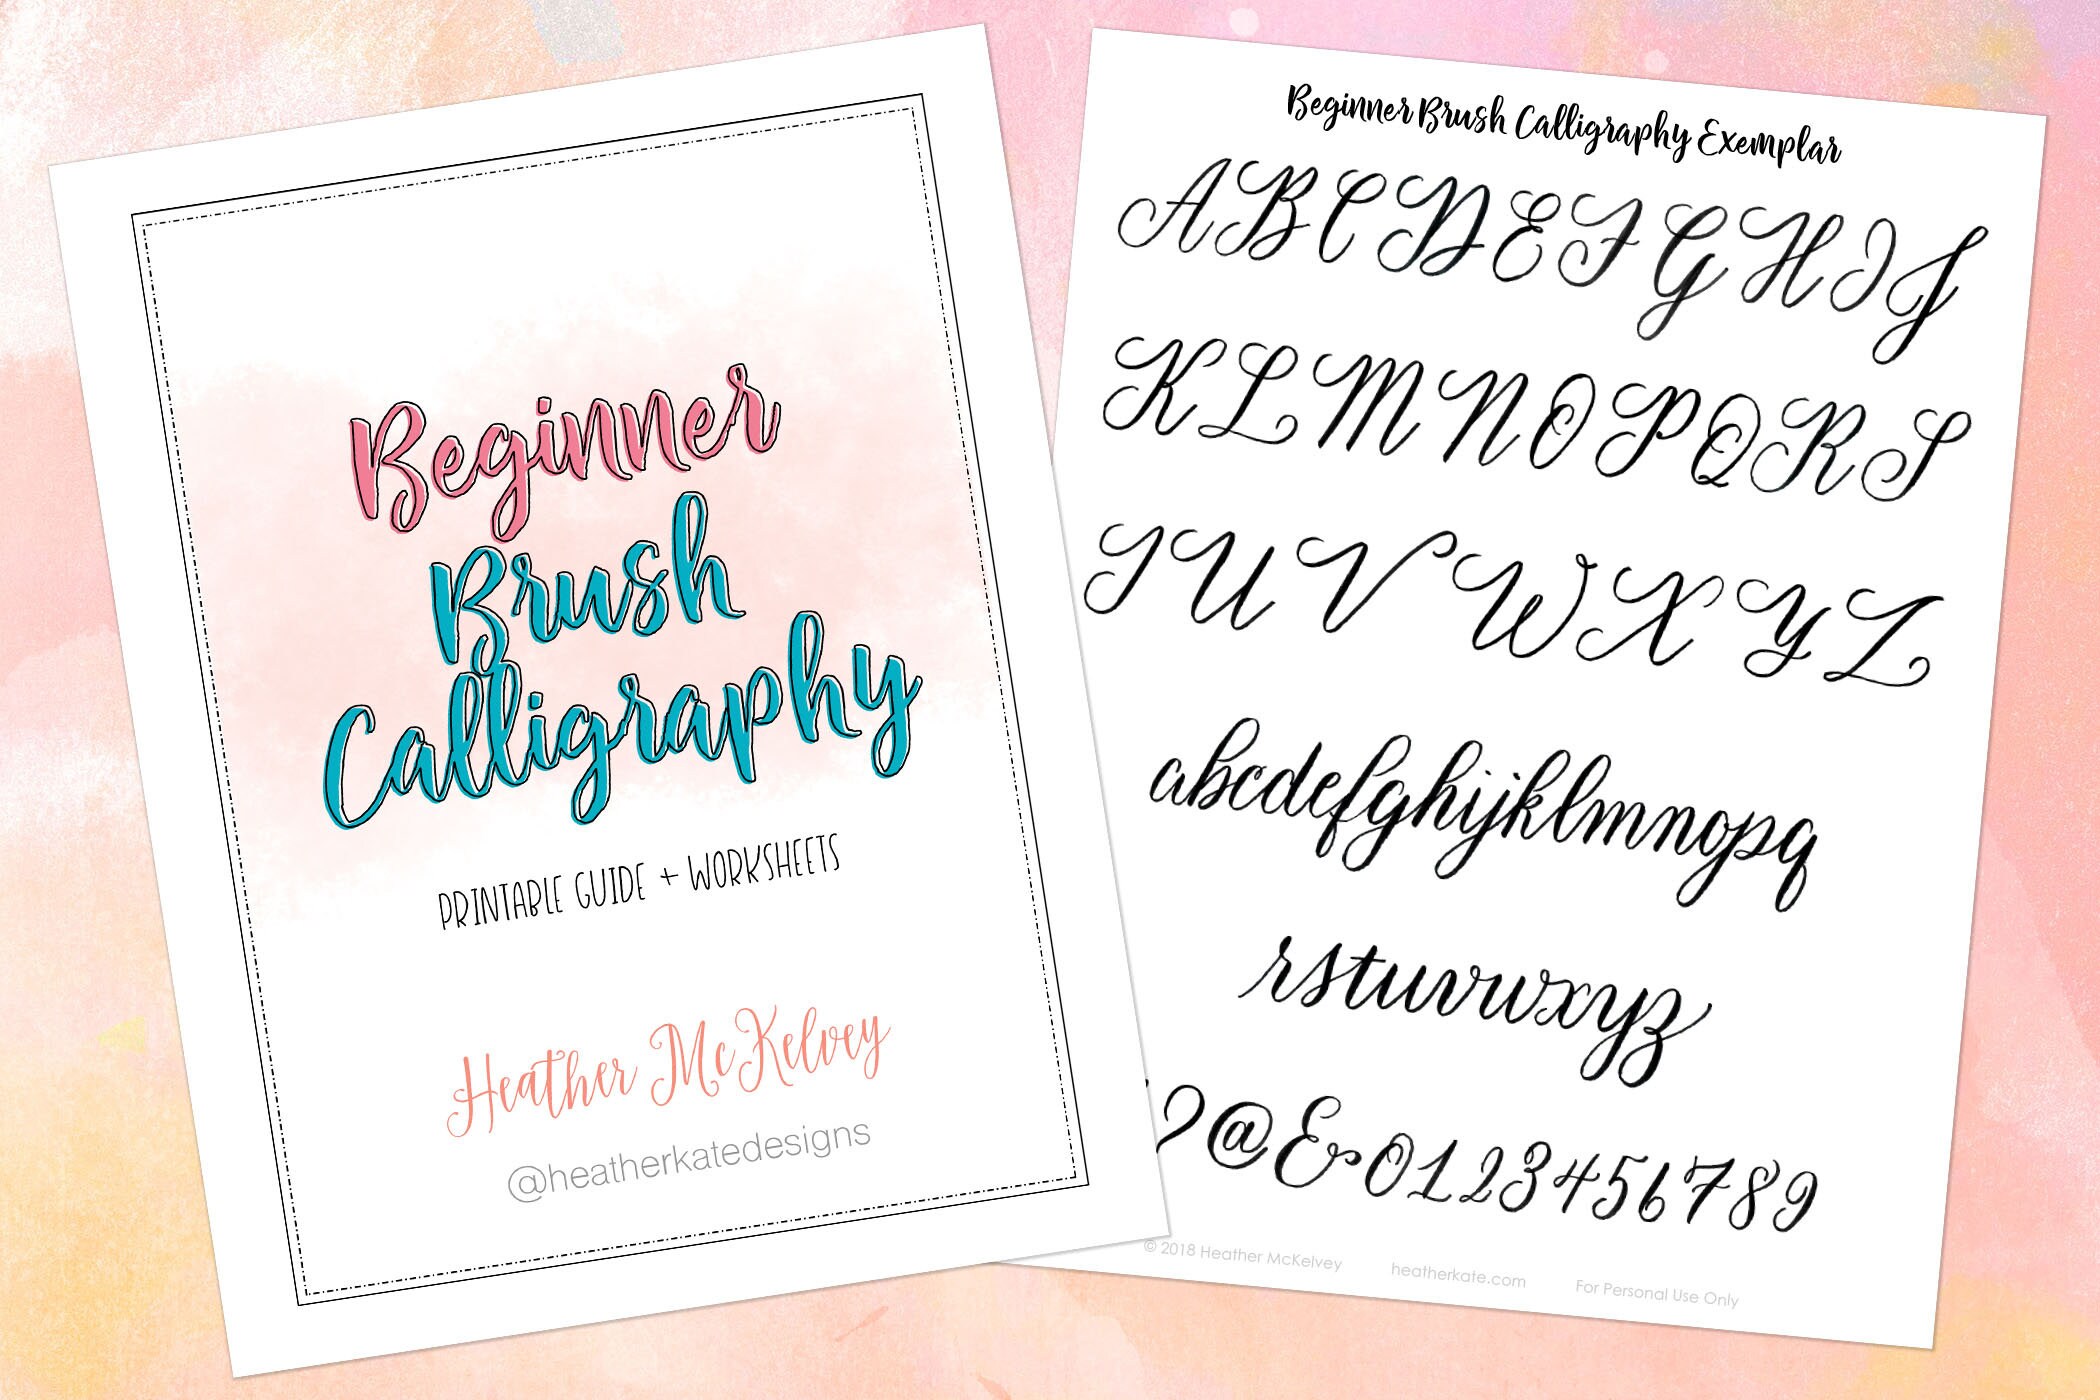 Beginner
Brush
Calligraphy
PRINTABLE GUIDE + WORKSHEETS
Heather McKelvey
@heatherkatedesigns
Beginner Brush Calligraphy Exemplar
A B C D E F G H I J
K L M N O P Q R S
T U V W X Y Z
abcdefghijklmnopq
rstuvwxyz
? @ & 0 1 2 3 4 5 6 7 8 9
© 2018 Heather McKelvey heatherkate.com For Personal Use Only